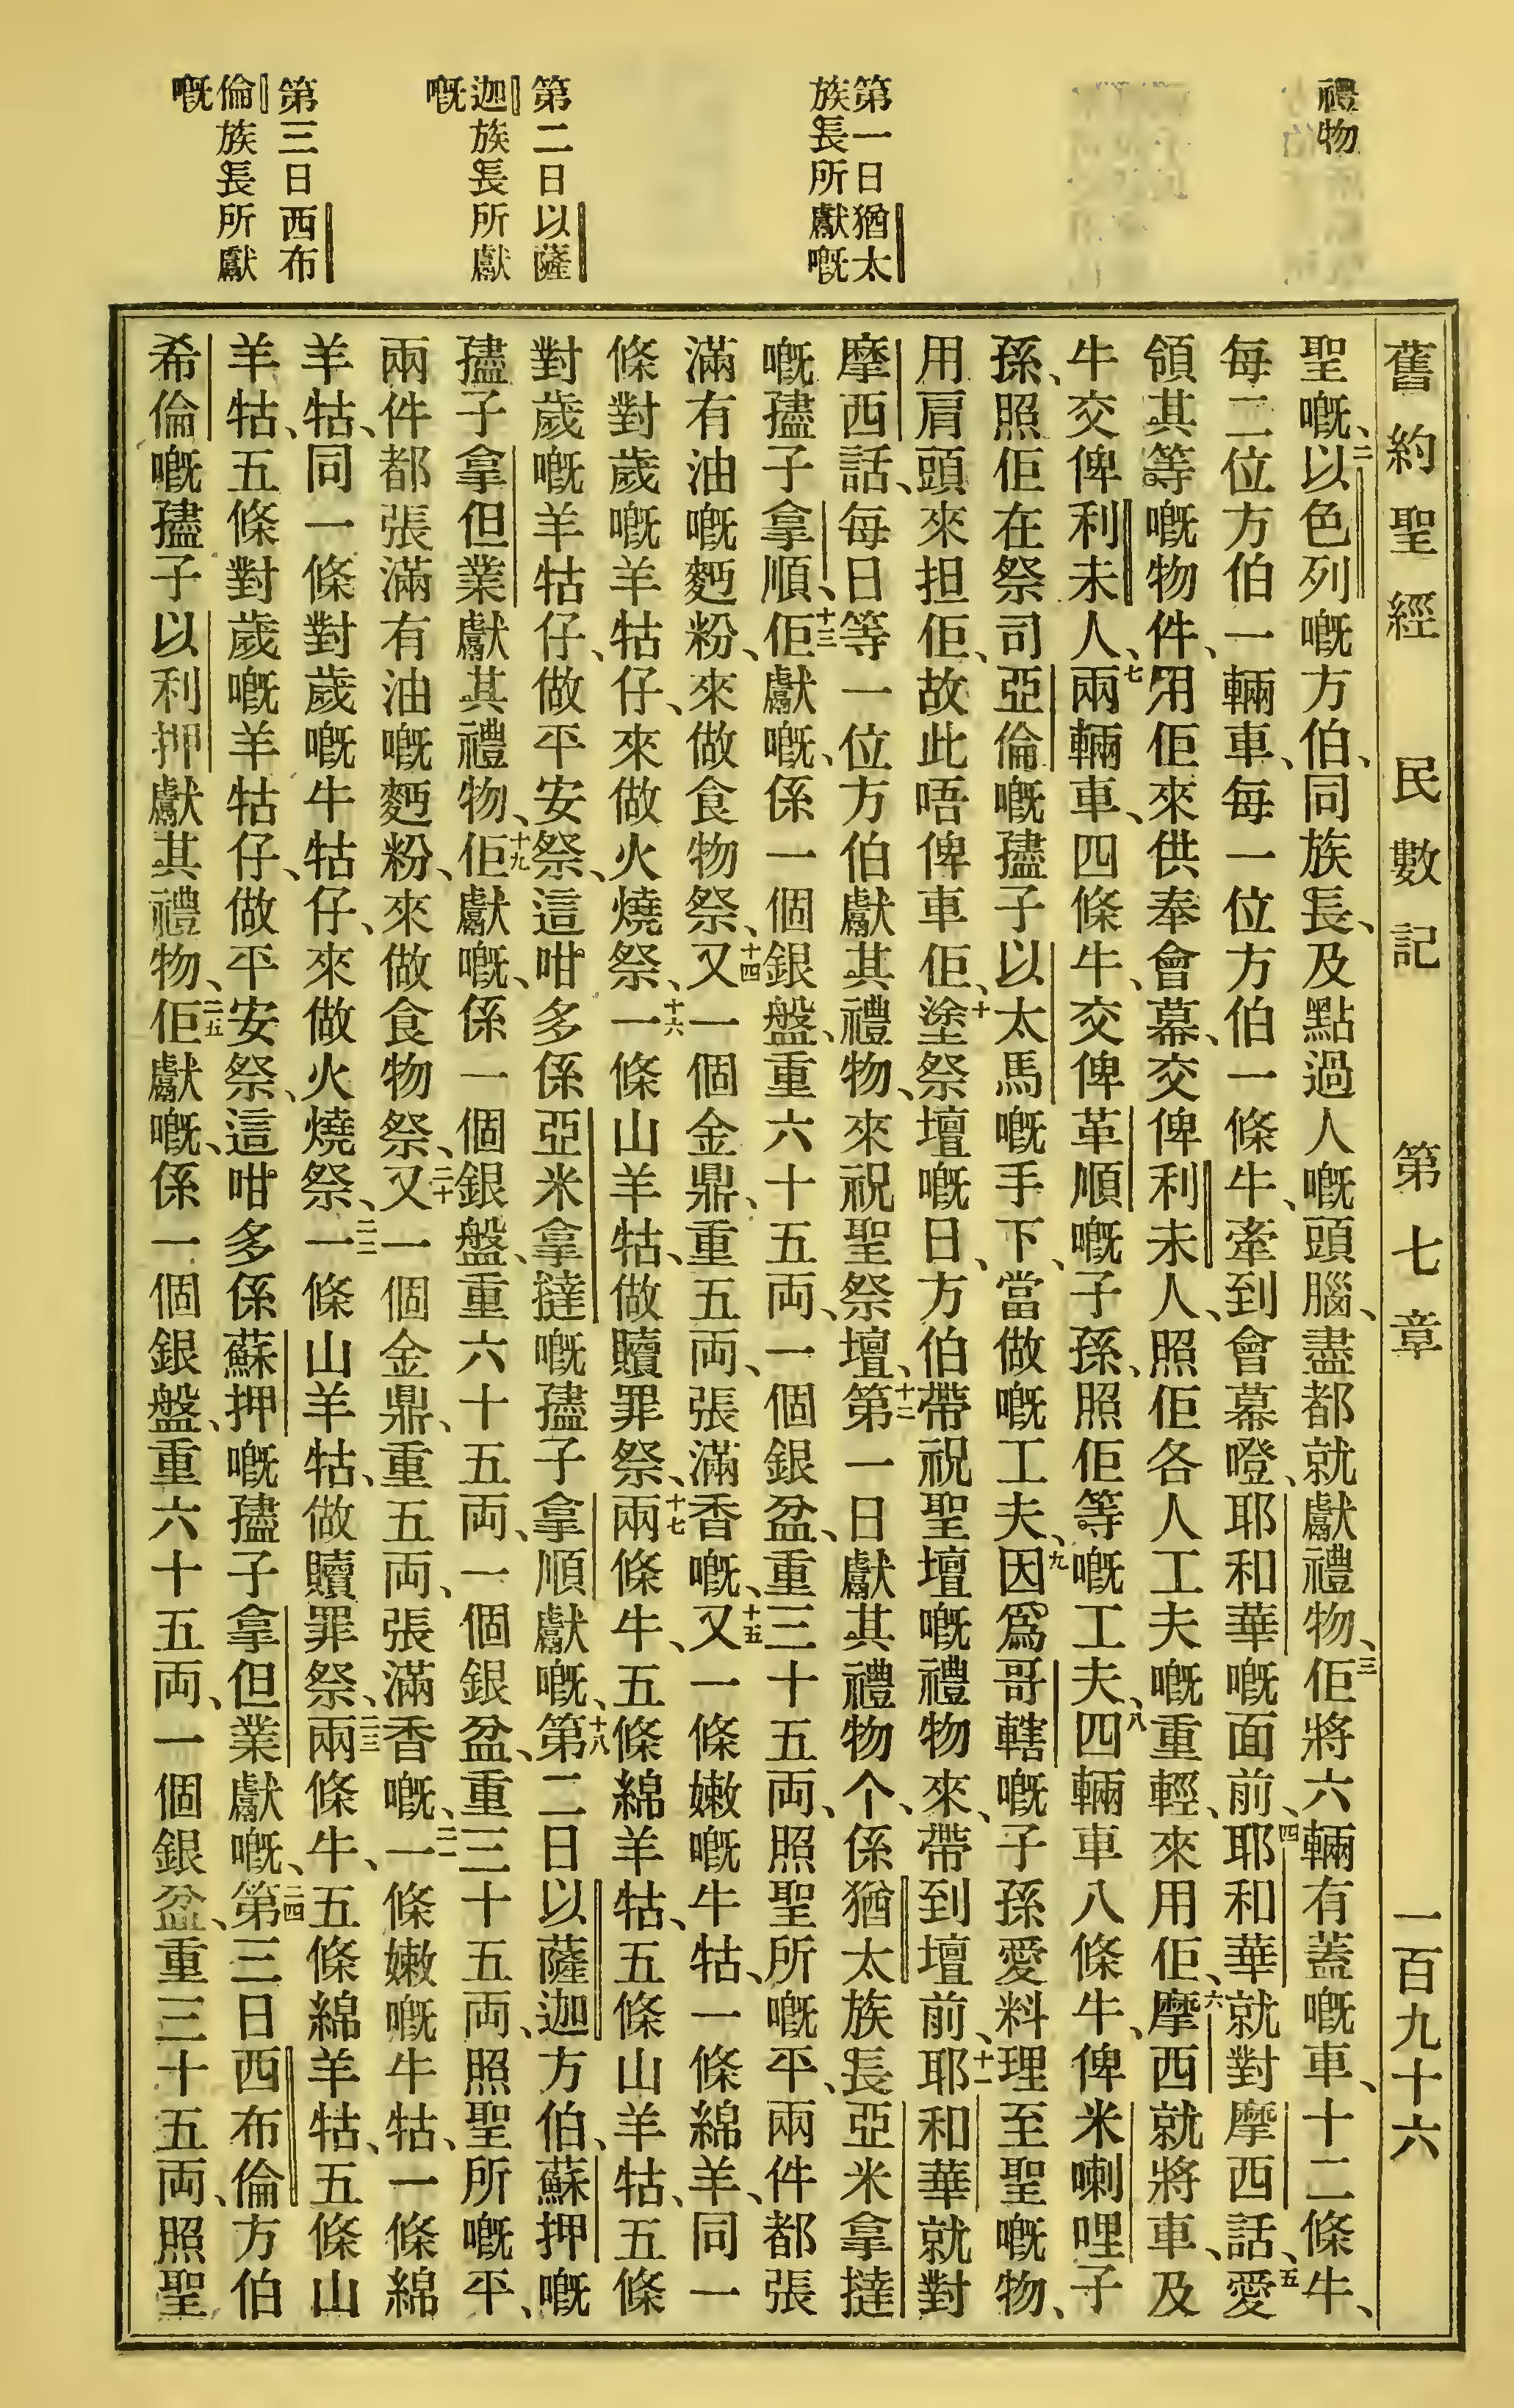 禮物
第一日猶太
族長所獻嘅
第二日以薩
迦族長所獻
嘅
第三日西布
倫族長所獻
嘅
舊約聖經 民數記 第七章 一百九十六
聖嘅、二以色列嘅方伯、同族長、及點過人嘅頭腦、盡都就獻禮物、三佢將六輛有蓋嘅車、十二條牛、
每二位方伯一輛車、每一位方伯一條牛、牽到會幕嶝、耶和華嘅面前、四耶和華就對摩西話、五愛
領其等嘅物件、用佢來供奉會幕、交俾利未人、照佢各人工夫嘅重輕、來用佢、六摩西就將車、及
牛交俾利未人、七兩輛車、四條牛、交俾革順嘅子孫、照佢等嘅工夫、八四輛車八條牛、俾米喇哩子
孫、照佢在祭司亞倫嘅孻子以太馬嘅手下、當做嘅工夫、九因爲哥轄嘅子孫愛料理至聖嘅物、
用肩頭來担佢、故此唔俾車佢、十塗祭壇嘅日、方伯帶祝聖壇嘅禮物來、帶到壇前、十一耶和華就對
摩西話、每日等一位方伯獻其禮物、來祝聖祭壇、十二第一日獻其禮物个、係猶太族長亞米拿撻
嘅孻子拿順、十三佢獻嘅、係一個銀盤、重六十五両、一個銀盆、重三十五両、照聖所嘅平、兩件都張
滿有油嘅麪粉、來做食物祭、十四又一個金鼎、重五両、張滿香嘅、十五又一條嫩嘅牛牯、一條綿羊、同一
條對歲嘅羊牯仔、來做火燒祭、十六一條山羊牯、做贖罪祭、十七兩條牛、五條綿羊牯、五條山羊牯、五條
對歲嘅羊牯仔、做平安祭、這咁多係亞米拿撻嘅孻子拿順獻嘅、十八第二日以薩迦方伯、蘇押嘅
孻子拿但業獻其禮物、十九佢獻嘅、係一個銀盤、重六十五両、一個銀盆、重三十五両、照聖所嘅平、
兩件都張滿有油嘅麪粉、來做食物祭、二十又一個金鼎、重五両、張滿香嘅、二一一條嫩嘅牛牯、一條綿
羊牯、同一條對歲嘅牛牯仔、來做火燒祭、二二一條山羊牯、做贖罪祭、二三兩條牛、五條綿羊牯、五條山
羊牯、五條對歲嘅羊牯仔、做平安祭、這咁多係蘇押嘅孻子拿但業獻嘅、二四第三日西布倫方伯
希倫嘅孻子以利押獻其禮物、二五佢獻嘅、係一個銀盤、重六十五両、一個銀盆、重三十五両、照聖